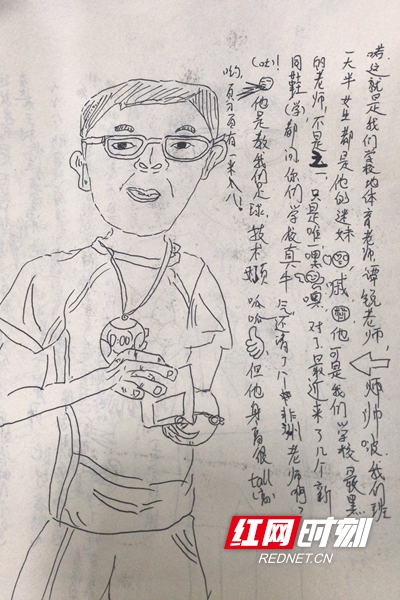 喏，这就是我们学校的体育老师谭锐老师，帅帅哒，我们班
一大半女生都是他的迷妹，他可是我们学校最黑
的老师，不是之一，只是唯一，嘿。对了，最近来了几个新
同鞋（学）都问你们学校真牛气，还请了个非洲老师啊？
他是教我们足球，技术 哈哈，但他身高很tall（高）
哟，有一米八！
0:00
红网时刻
REDNET.CN